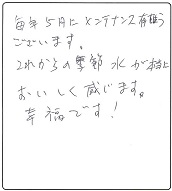 毎年5月にメンテナンス有難う
ございます。
これからの季節 水が格上
おいしく感じます。
幸福です!